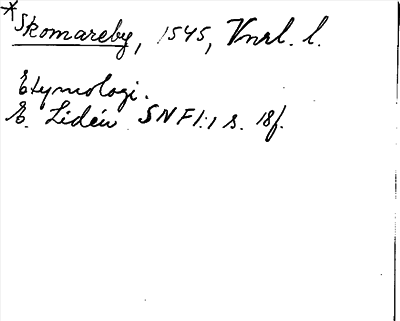 *Skomareby, 1545, Vnrl. l.
Etymologi.
E. Lidén SNF 1:1 s. 18f.